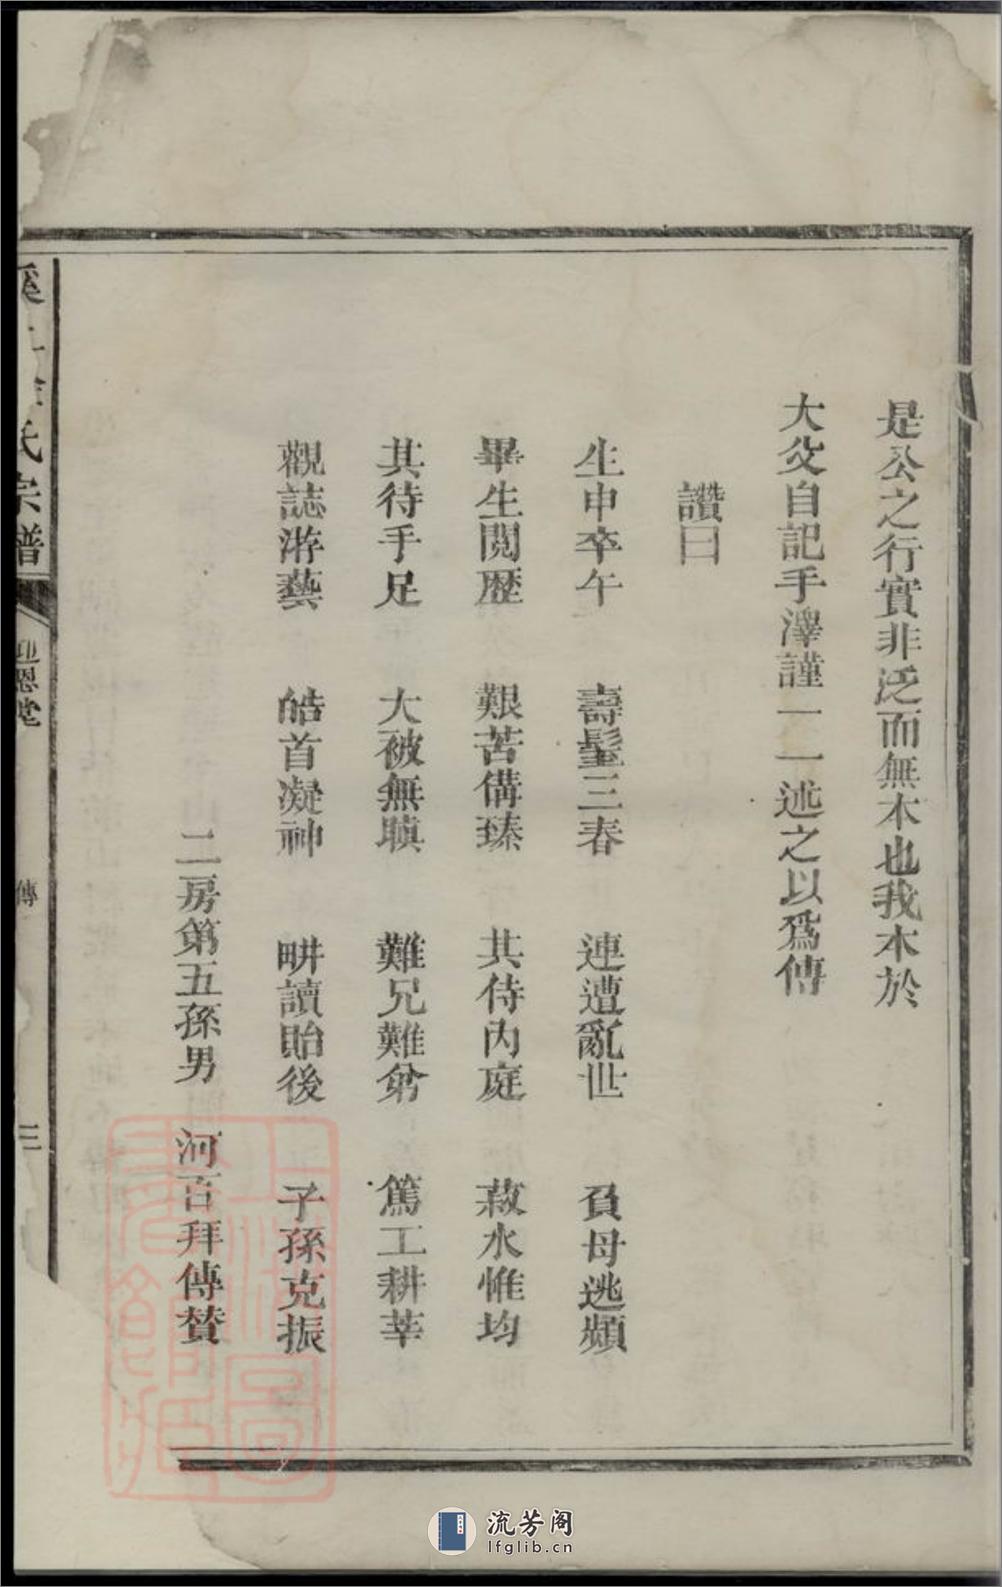 是公之行實非泛而無本也我本於
大父自記手澤謹一一述之以爲傳
讚曰
生申卒午 壽髦三春 連遭亂世 負母逃頻
畢生閱歷 艱苦備臻 其侍內庭 菽水惟均
其待手足 大被無瞋 難兄難弟 篤工耕莘
觀誌游藝 皓首凝神 畊讀貽後 子孫克振
二房第五孫男 河百拜傳贊
溪 氏宗譜 迎恩堂 傳 三
上海圖書館藏
流芳阁
lfglib.cn